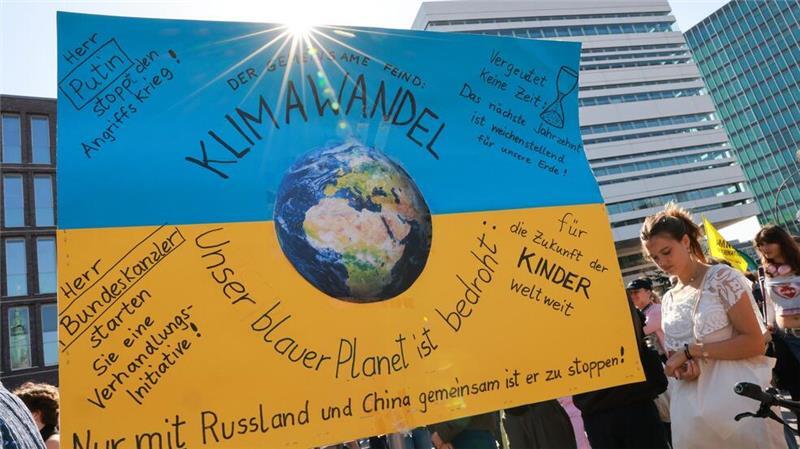 Herr
Putin
stopp den
Angriffs krieg!
DER GEMEINSAME FEIND:
KLIMAWANDEL
Vergeudet
keine Zeit:
Das nächste Jahrzehnt
ist weichenstellend
für unsere Erde!
Herr
Bundeskanzler
starten
Sie eine
Verhandlungs-
Initiative!
Unser blauer Planet ist bedroht:
für
die Zukunft der
KINDER
weltweit
Nur mit Russland und China gemeinsam ist er zu stoppen!